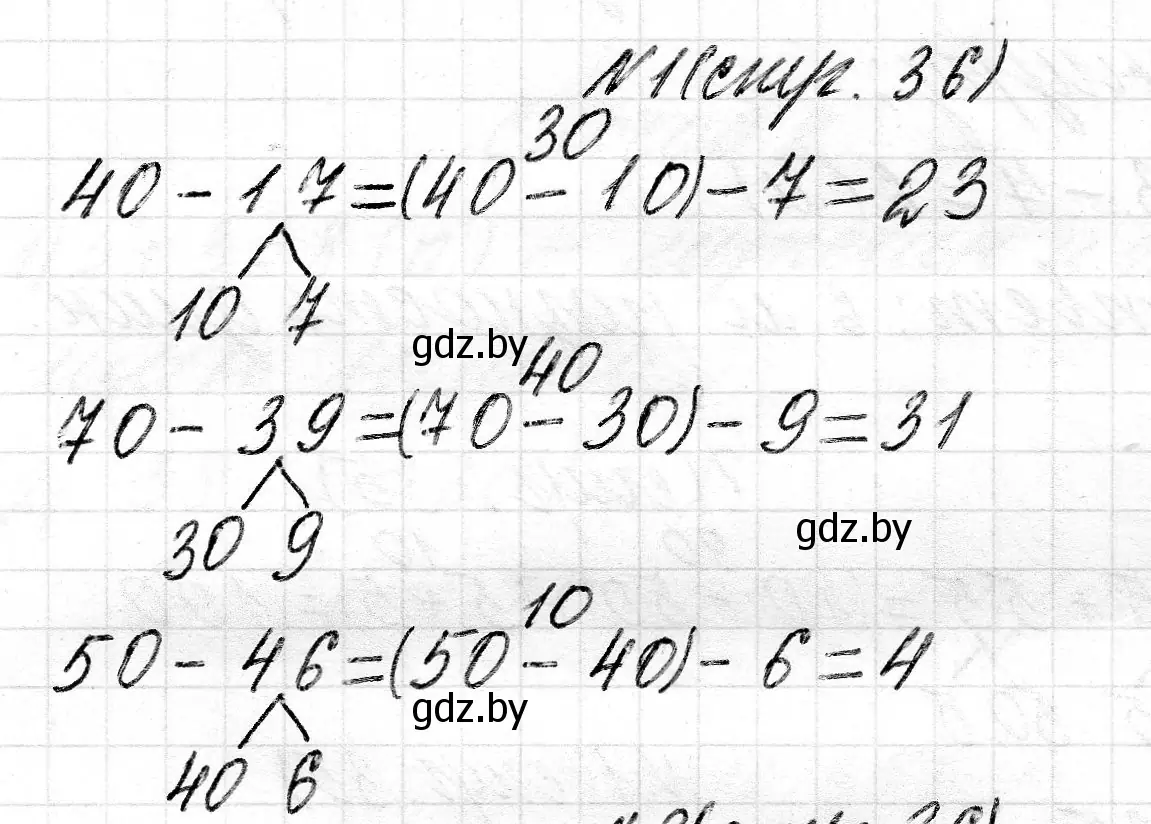 №1(стр. 36)
30
40 - 17 = (40 - 10) - 7 = 23
10 7
gdz.by
40
70 - 39 = (70 - 30) - 9 = 31
30 9
gdz.by
10
50 - 46 = (50 - 40) - 6 = 4
gdz.by
40 6